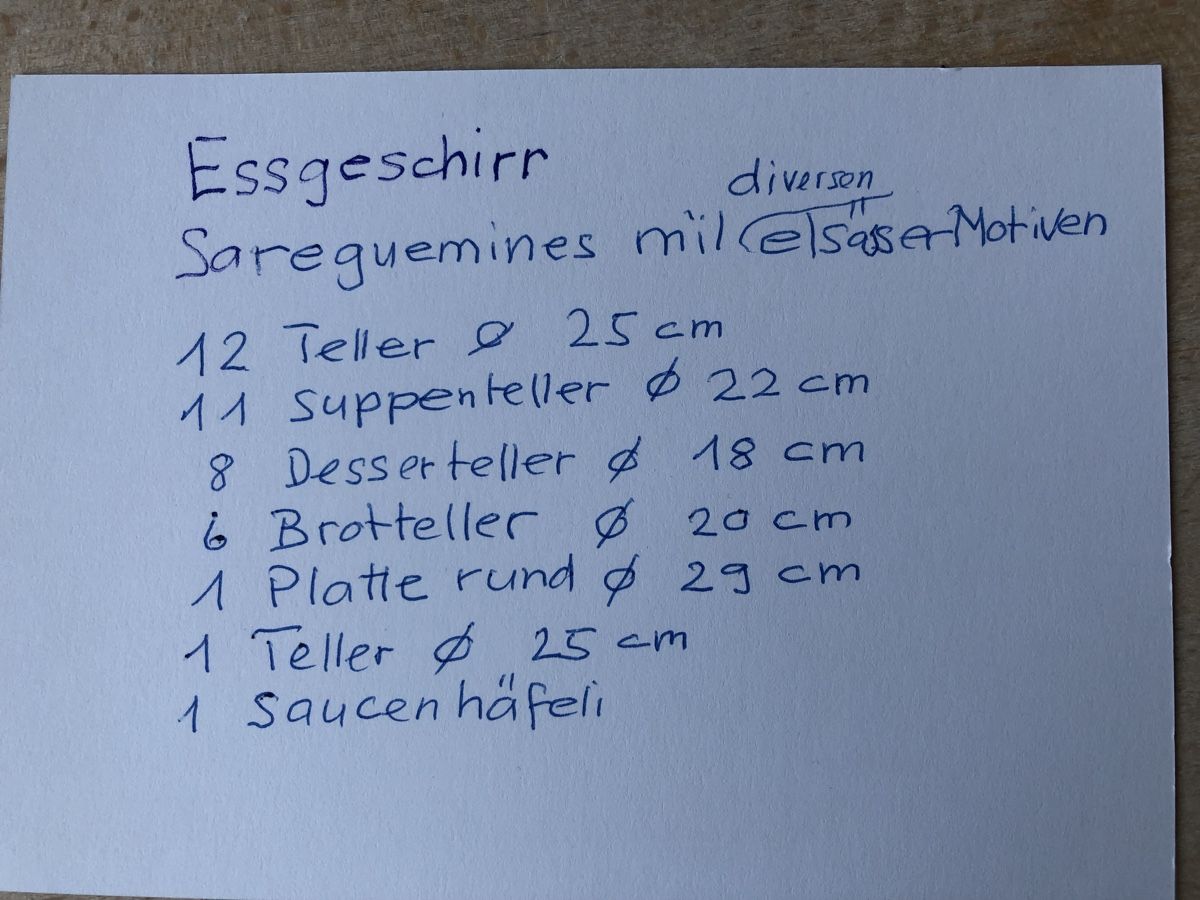 Essgeschirr
diversen
Sareguemines mit elsässer Motiven
12 Teller ø 25 cm
11 Suppenteller ø 22 cm
8 Desserteller ø 18 cm
6 Brotteller ø 20 cm
1 Platte rund ø 29 cm
1 Teller ø 25 cm
1 Saucenhäfeli